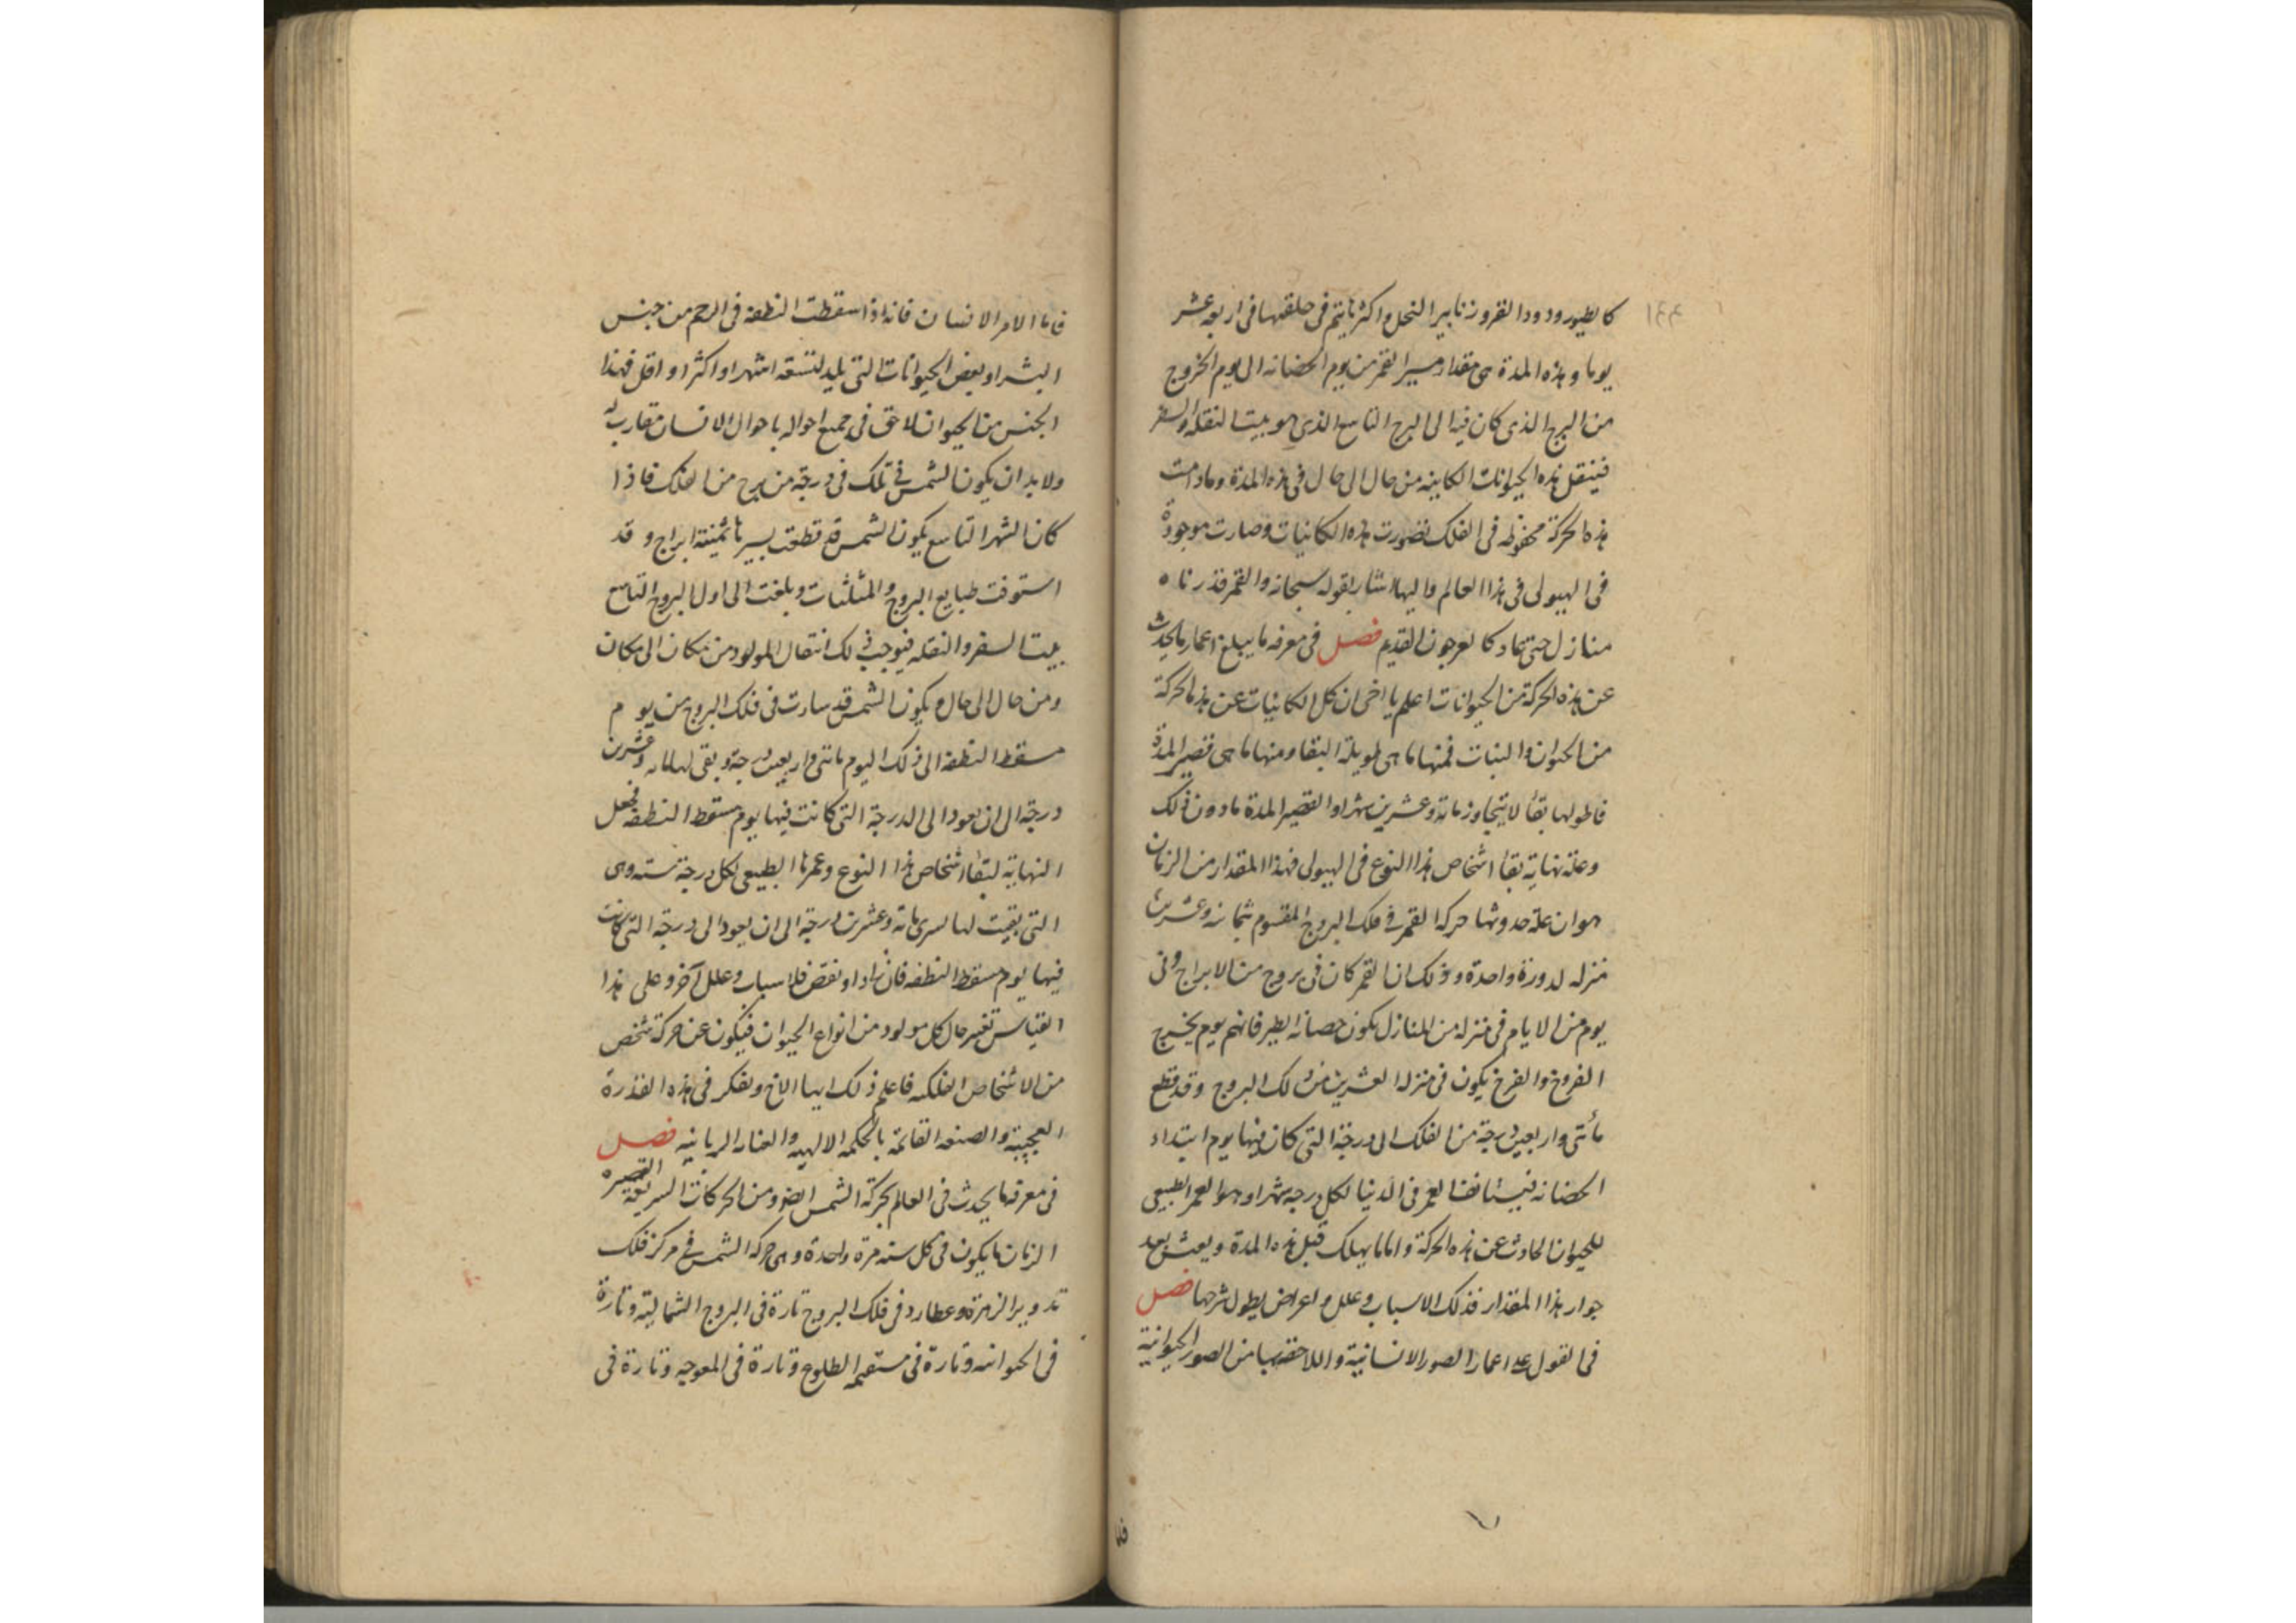 ١٤٤
كالطيور ودود القز وزنابير النحل واكثر ما يتم في خلقتها في اربعة عشر
يوما وهذه المدة هي مقدار مسير القمر من يوم الحضانه الى يوم الخروج
من البرج الذي كان فيه الى البرج التاسع الذي هو بيت النقله والسفر
فينتقل هذه الحيوانات الكاينه من حال الى حال في هذه المدة وما دامت
هذه الحركة محفوظه في الفلك تصورت هذه الكائنات وصارت موجودة
في الهيولى في هذا العالم واليها اشار بقوله سبحانه والقمر قدرناه
منازل حتى عاد كالعرجون القديم فصل في معرفه ما يبلغ اعمار ما يحدث
عن هذه الحركة من الحيوانات اعلم يا اخى ان كل الكائنيات عن هذه الحركة
من الحيوان والنبات فمنها ما هي طويلة البقا ومنها ما هي قصير المدة
فاطولها بقأ لا يتجاوز مائة وعشرين شهرا والقصير المدة ما دون ذلك
وعلة نهاية بقأ اشخاص هذا النوع في الهيولى فهذا المقدار من الزمان
هو ان علة حدوثها حركة القمر في فلك البروج المقسوم ثمانيه وعشرين
منزله لدورة واحدة وذلك ان القمر كان في بروج من الابراج وفي
يوم من الايام في منزله من المنازل يكون حضانه الطير فانهم يوم يخرج
الفروخ والفرخ يكون في منزله العشرين من ذلك البروج وقد قطع
مأتى واربعين درجة من الفلك الى درجة التى كان فيها يوم ابتداء
الحضانه فيستانف العمر في الدنيا لكل درجه شهرا وهو العمر الطبيعى
للحيوان الحادث عن هذه الحركة واما ما يهلك قبل هذه المدة ويعيش بعد
جوار هذا المقدار فذلك الاسباب وعلل واعراض يطول شرحها فصل
في القول على اعمار الصور الانسانية واللاحقه بها من الصور الحيوانية
فاما
فاما الامر الانسان فانه اذا سقطت النطفه في الرحم من جنس
البشر او بعض الحيوانات التى يليد لتسعه اشهر او اكثر او اقل فهذا
الجنس من الحيوان لاحق في جميع احواله باحوال الانسان مقارب له
ولا بد ان يكون الشمس في تلك في درجة من برج من الفلك فاذا
كان الشهر التاسع يكون الشمس قد قطعت بسيرها ثمنية ابراج وقد
استوفت طبايع البروج والمثلثات وبلغت الى اول البروج التاسع
بيت السفر والنقله فيوجب ذلك انتقال المولود من مكان الى مكان
ومن حال الى حال ويكون الشمس قد سارت في فلك البروج من يوم
مسقط النطفه الى ذلك اليوم مائتى واربعين درجة وبقى لها مائه وعشرين
درجة الى ان يعود الى الدرجة التى كانت فيها يوم مسقط النطفه فجعل
النهاية لبقأ اشخاص هذا النوع وعمرها الطبيعى لكل درجة سنه وهى
التى بقيت لها لسرى مائة وعشرين درجة الى ان يعود الى درجة التى كانت
فيها يوم مسقط النطفه فان زاد او نقص فلاسباب وعلل آخر وعلى هذا
القياس تغير حال كل مولود من انواع الحيوان فيكون عن حركة شخص
من الاشخاص الفلكيه فاعلم ذلك ايها الاخ وتفكر في هذه القدرة
العجيبة والصنعه القائمة بالحكمه الالهيه والعنايه الربانيه فصل
في معرفه ما يحدث في العالم بحركة الشمس ايضو ومن الحركات السريعة القصيره
الزمان ما يكون في كل سنه مرة واحدة وهى حركة الشمس في مركز فلك
تدوير الزهره وعطارد في فلك البروج تارة في البروج الشمالية وتارة
في الجنوبيه وتارة في مستقيمه الطلوع وتارة في المعوجه وتارة في